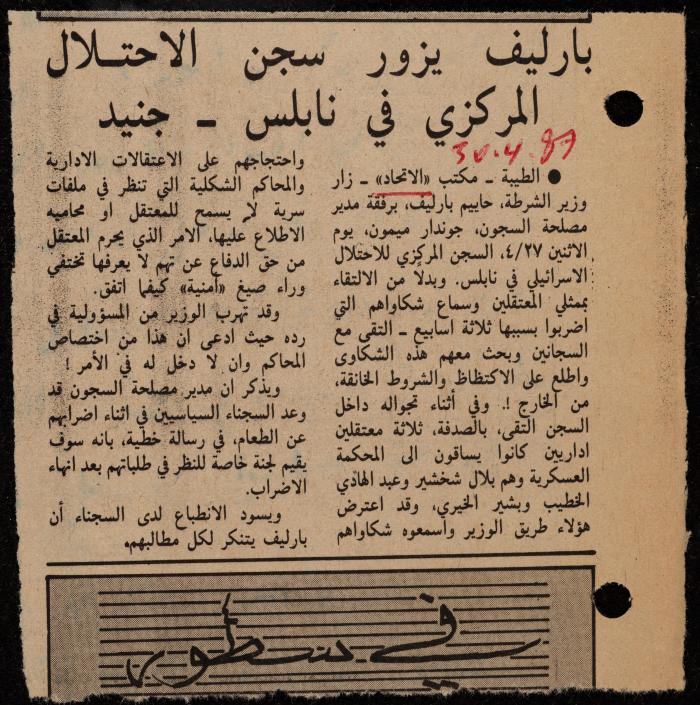 بارليف يزور سجن الاحتلال
المركزي في نابلس ـ جنيد
30.4.87
● الطيبة ـ مكتب «الاتحاد» ـ زار
وزير الشرطة، حاييم بارليف، برفقة مدير
مصلحة السجون، جوندار ميمون، يوم
الاثنين ٤/٢٧، السجن المركزي للاحتلال
الاسرائيلي في نابلس. وبدلا من الالتقاء
بممثلي المعتقلين وسماع شكاواهم التي
اضربوا بسببها ثلاثة اسابيع ـ التقى مع
السجانين وبحث معهم هذه الشكاوى
واطلع على الاكتظاظ والشروط الخانقة،
من الخارج !. وفي أثناء تجواله داخل
السجن التقى، بالصدفة، ثلاثة معتقلين
اداريين كانوا يساقون الى المحكمة
العسكرية وهم بلال شخشير وعبد الهادي
الخطيب وبشير الخيري، وقد اعترض
هؤلاء طريق الوزير واسمعوه شكاواهم
واحتجاجهم على الاعتقالات الادارية
والمحاكم الشكلية التي تنظر في ملفات
سرية لا يسمح للمعتقل او محاميه
الاطلاع عليها، الامر الذي يحرم المعتقل
من حق الدفاع عن تهم لا يعرفها تختفي
وراء صيغ «أمنية» كيفما اتفق.
وقد تهرب الوزير من المسؤولية في
رده حيث ادعى ان هذا من اختصاص
المحاكم وان لا دخل له في الأمر !
ويذكر ان مدير مصلحة السجون قد
وعد السجناء السياسيين في اثناء اضرابهم
عن الطعام، في رسالة خطية، بانه سوف
يقيم لجنة خاصة للنظر في طلباتهم بعد انهاء
الاضراب.
ويسود الانطباع لدى السجناء أن
بارليف يتنكر لكل مطالبهم.
في سطور